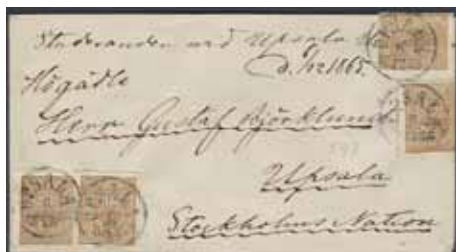 Studeranden vid Upsala
d. /12 1865.
Högädle
Herr Gustaf Björklund
Upsala
Stockholms Nation